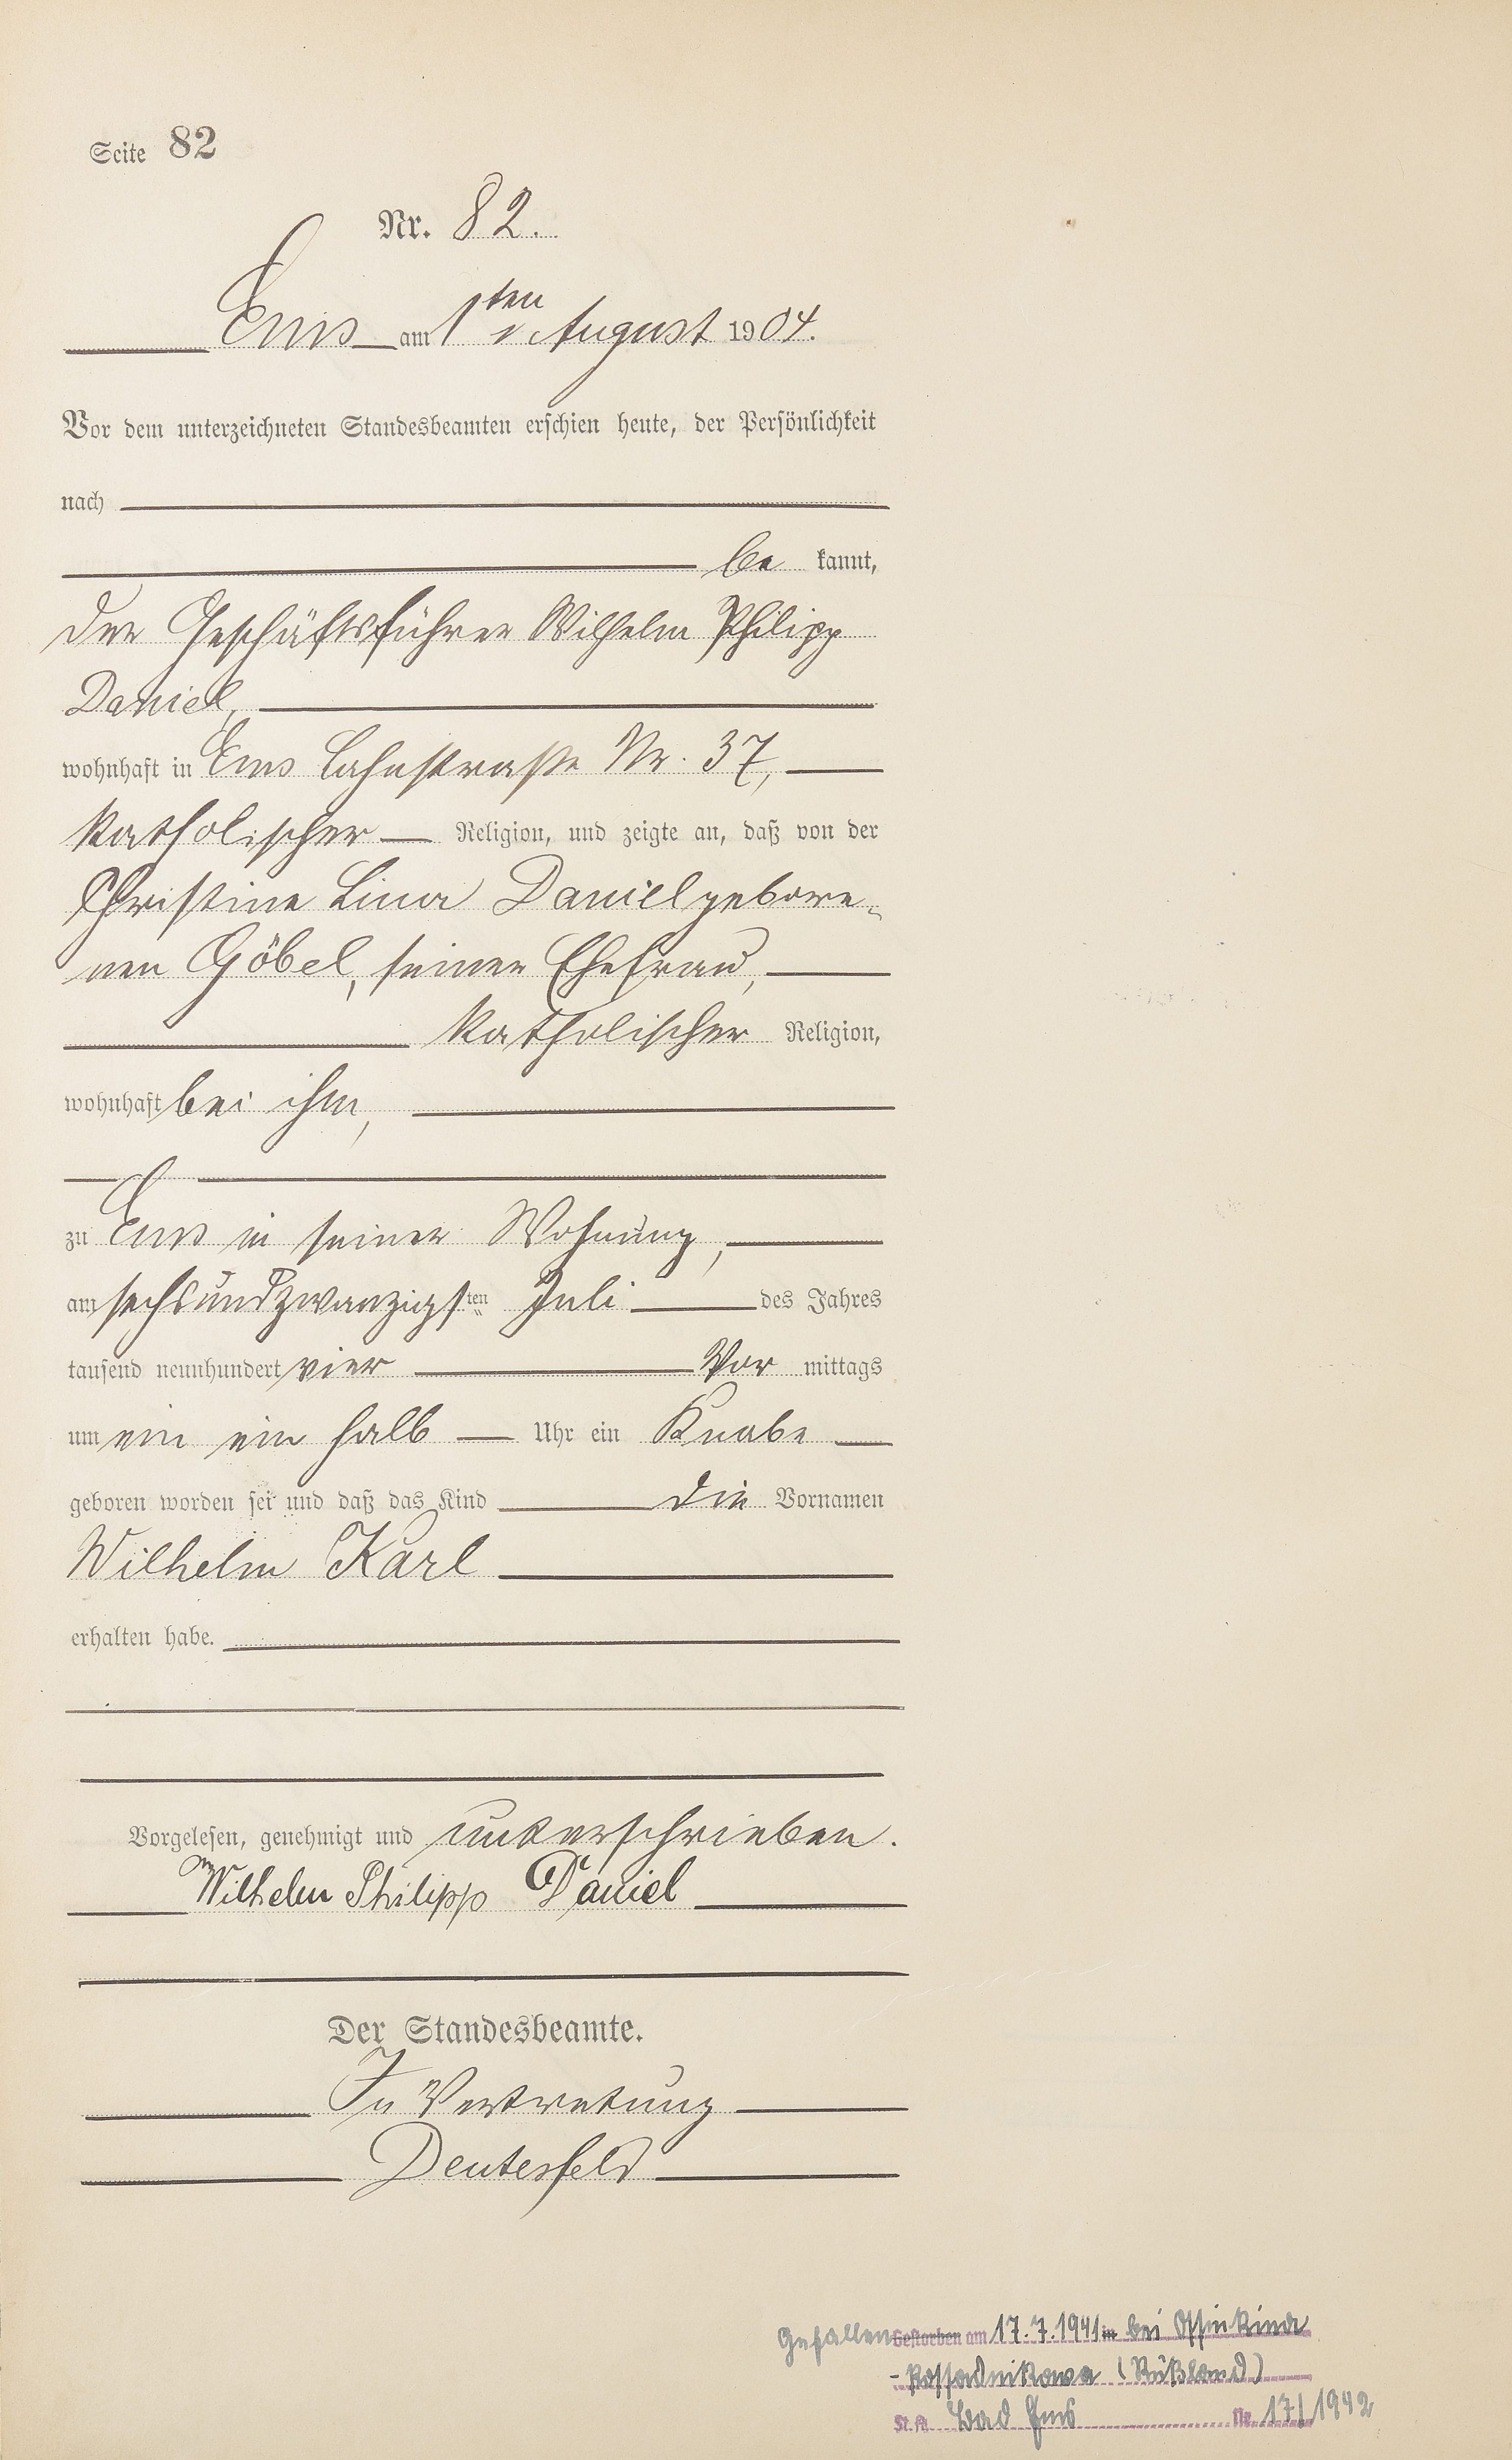 Seite 82
Nr. 82.
Ems am 1ten August 1904.
Vor dem unterzeichneten Standesbeamten erschien heute, der Persönlichkeit
nach
be kannt,
der Geschäftsführer Wilhelm Philipp
Daniel,
wohnhaft in Ems Lahnstraße Nr. 37,
katholischer Religion, und zeigte an, daß von der
Christine Lina Daniel gebore-
nen Göbel, seiner Ehefrau,
katholischer Religion,
wohnhaft bei ihm,
zu Ems in seiner Wohnung,
am sechsundzwanzigsten Juli des Jahres
tausend neunhundert vier Vor mittags
um ein ein halb Uhr ein Knabe
geboren worden sei und daß das Kind die Vornamen
Wilhelm Karl
erhalten habe.
Vorgelesen, genehmigt und unterschrieben.
Wilhelm Philipp Daniel
Der Standesbeamte.
In Vertretung
Deutesfeld
Gefallen Gestorben am 17.7.1941 in bei Ossinkina
- Rossadnikowa (Rußland)
St. A. Bad Ems Nr. 17/1942